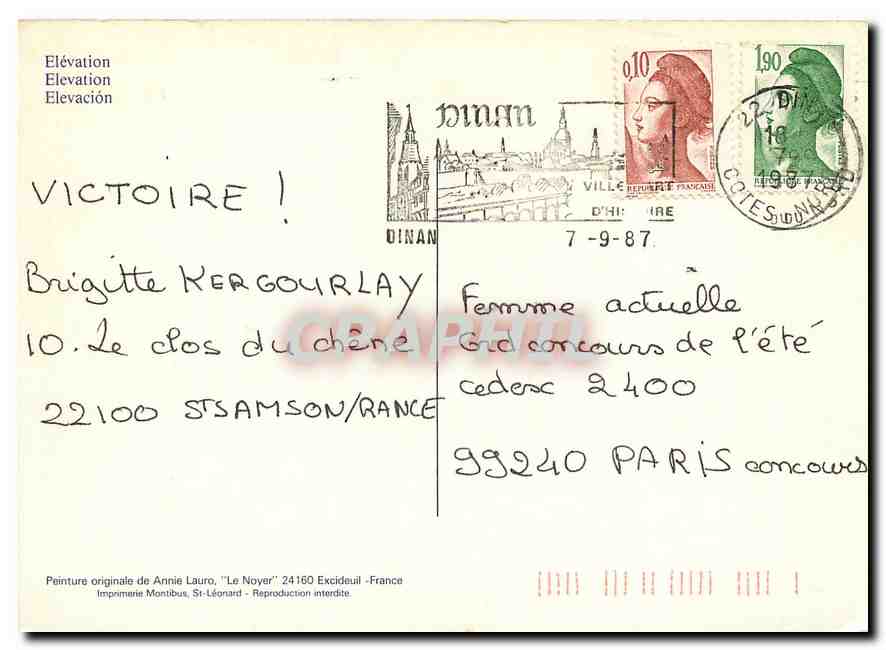 Elévation
Elevation
Elevación
0,10
RÉPUBLIQUE FRANÇAISE
1,90
DINAN
VILLE D'ART
D'HISTOIRE
DINAN
7 -9-87
22 DINAN
18
7-9
1987
COTES DU NORD
VICTOIRE !
Brigitte KERGOURLAY
10. Le clos du chêne
22100 ST SAMSON/RANCE
Femme actuelle
Grd concours de l'été
cedesc 2400
99240 PARIS concours
CPARAMA
Peinture originale de Annie Lauro, "Le Noyer" 24160 Excideuil -France
Imprimerie Montibus, St-Léonard - Reproduction interdite.